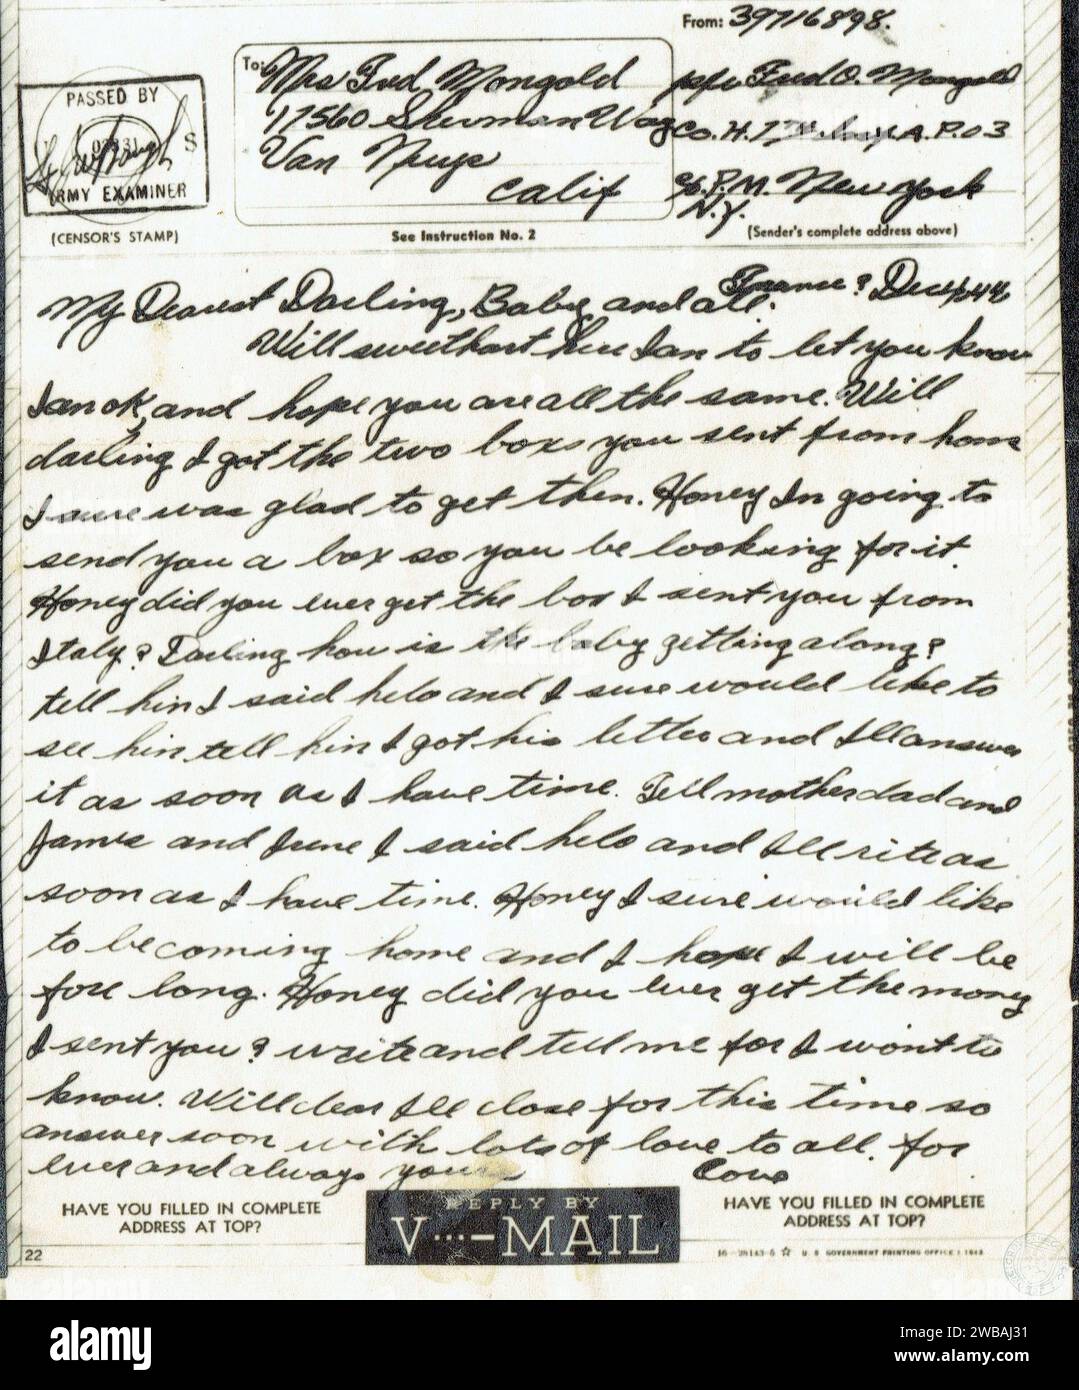 From: 39716898.
To: Mrs Fred Mongold
pfc Fred O. Mongold
PASSED BY
17560 Sherman Way
Co. H. 7 A.P.O 3
S
Van Nuys
ARMY EXAMINER
Calif
c/o P.M. New York
N.Y.
(CENSOR'S STAMP)
See Instruction No. 2
(Sender's complete address above)
France? Dec 44
My Dearest Darling, Baby and all.
Will sweethart here I an to let you know
I an ok, and hope you are all the same. Will
darling I got the two boxs you sent from home
I sure was glad to get then. Honey In going to
send you a box so you be looking for it.
Honey did you ever get the box I sent you from
Italy? Darling how is the baby getting along?
tell hin I said helo and I sure would like to
see hin tell hin I got his letter and Ill answer
it as soon as I have time. Tell mother dad and
James and June I said helo and Ill rite as
soon as I have time. Honey I sure would like
to be coming home and I hope I will be
fore long. Honey did you ever get the money
I sent you? write and tell me for I wont to
know. Will dear Ill close for this time so
answer soon with lots of love to all. for
ever and always yours Love
HAVE YOU FILLED IN COMPLETE
ADDRESS AT TOP?
REPLY BY
V···—MAIL
HAVE YOU FILLED IN COMPLETE
ADDRESS AT TOP?
22
16—28143-5 ☆ U. S. GOVERNMENT PRINTING OFFICE : 1943
alamy
Image ID: 2WBAJ31
www.alamy.com